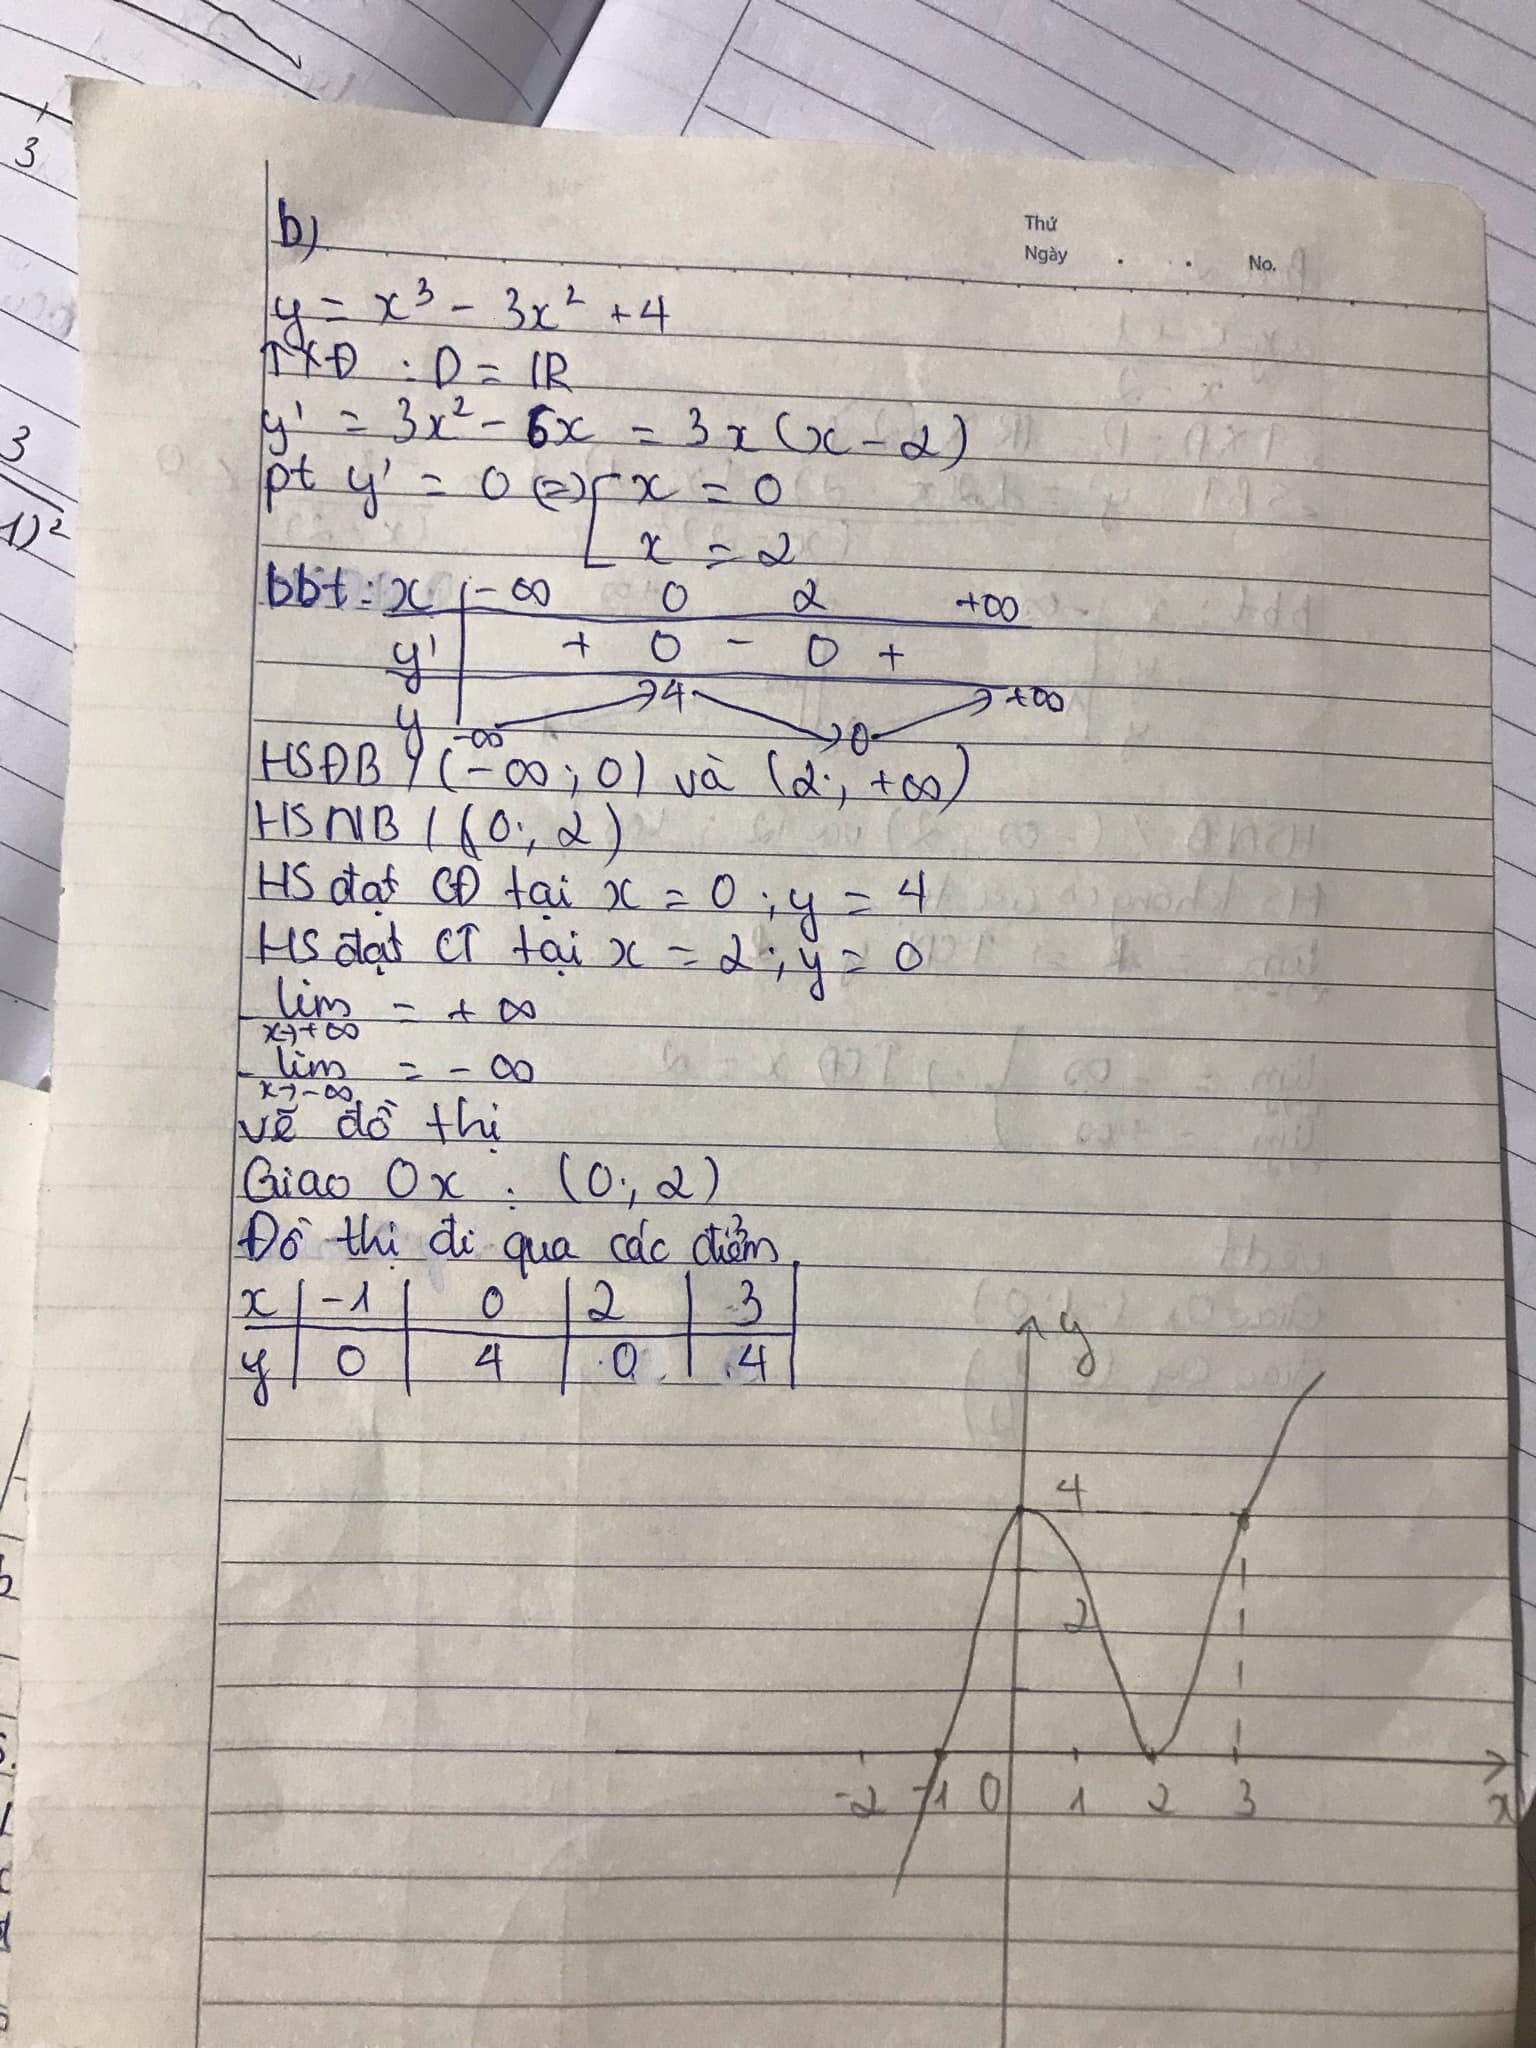 3
3
1)²
b)
Thứ
Ngày . . No.
y = x³ - 3x² + 4
TXĐ : D = ℝ
y' = 3x² - 6x = 3x(x - 2)
pt y' = 0 (=) [ x = 0
x = 2
bbt: x | -∞ 0 2 +∞
y' | + 0 - 0 +
y | -∞ ↗ 4 ↘ 0 ↗ +∞
HSĐB / (-∞; 0) và (2; +∞)
HSNB / (0; 2)
HS đạt CĐ tại x = 0 ; y = 4
HS đạt CT tại x = 2 ; y = 0
lim x→+∞ = +∞
lim x→-∞ = -∞
vẽ đồ thị
Giao Ox : (0; 2)
Đồ thị đi qua các điểm
x | -1 | 0 | 2 | 3
y | 0 | 4 | 0 | 4
y
4
2
-2 -1 0 1 2 3 x